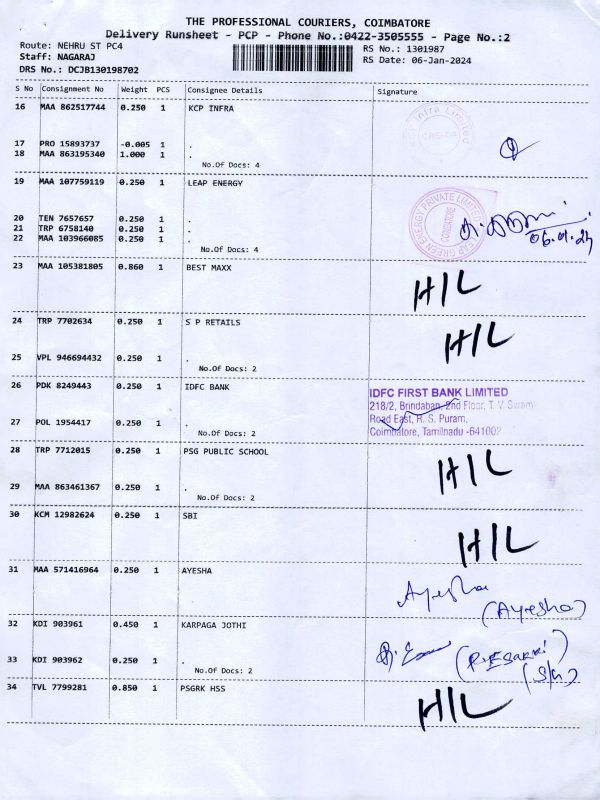 THE PROFESSIONAL COURIERS, COIMBATORE
Delivery Runsheet - PCP - Phone No.:0422-3505555 - Page No.:2
Route: NEHRU ST PC4 RS No.: 1301987
Staff: NAGARAJ RS Date: 06-Jan-2024
DRS No.: DCJB130198702
S No Consignment No Weight PCS Consignee Details Signature
16 MAA 862517744 0.250 1 KCP INFRA
17 PRO 15893737 -0.005 1 .
18 MAA 863195340 1.000 1 .
No.Of Docs: 4
19 MAA 107759119 0.250 1 LEAP ENERGY
20 TEN 7657657 0.250 1 .
21 TRP 6758140 0.250 1 .
22 MAA 103966085 0.250 1 .
06.01.24
No.Of Docs: 4
23 MAA 105381805 0.860 1 BEST MAXX
H/L
24 TRP 7702634 0.250 1 S P RETAILS
H/L
25 VPL 946694432 0.250 1 .
No.Of Docs: 2
26 PDK 8249443 0.250 1 IDFC BANK
IDFC FIRST BANK LIMITED
218/2, Brindaban, 2nd Floor, T. V. Swamy
Road East, R. S. Puram,
Coimbatore, Tamilnadu -641002
27 POL 1954417 0.250 1 .
No.Of Docs: 2
28 TRP 7712015 0.250 1 PSG PUBLIC SCHOOL
H/L
29 MAA 863461367 0.250 1 .
No.Of Docs: 2
30 KCM 12982624 0.250 1 SBI
H/L
31 MAA 571416964 0.250 1 AYESHA
Ayesha
(Ayesha)
32 KDI 903961 0.450 1 KARPAGA JOTHI
33 KDI 903962 0.250 1 .
No.Of Docs: 2
34 TVL 7799281 0.850 1 PSGRK HSS
H/L